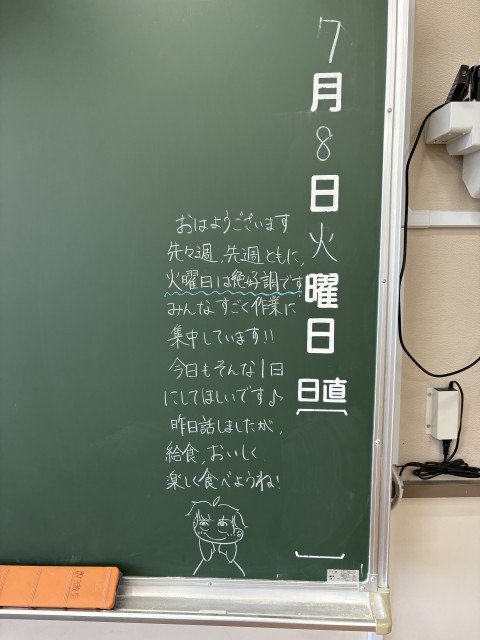 7月8日火曜日
日直
おはようございます
先々週、先週ともに、
火曜日は絶好調です
みんなすごく作業に
集中しています!!
今日もそんな1日
にしてほしいです♪
昨日話しましたが、
給食、おいしく
楽しく食べようね!